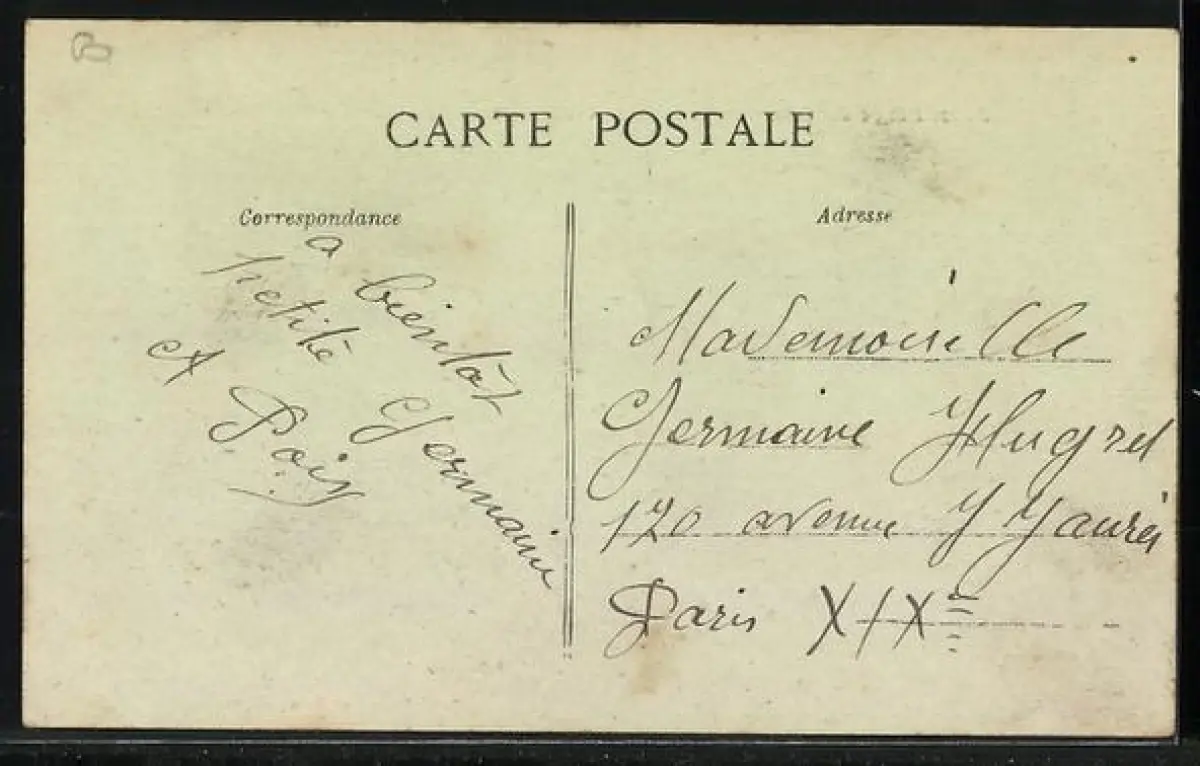 B
CARTE POSTALE
Correspondance
a bientôt
petite Germaine
A
Adresse
Mademoiselle
Germaine Hugrel
120 avenue J Jaurès
Paris XIXe